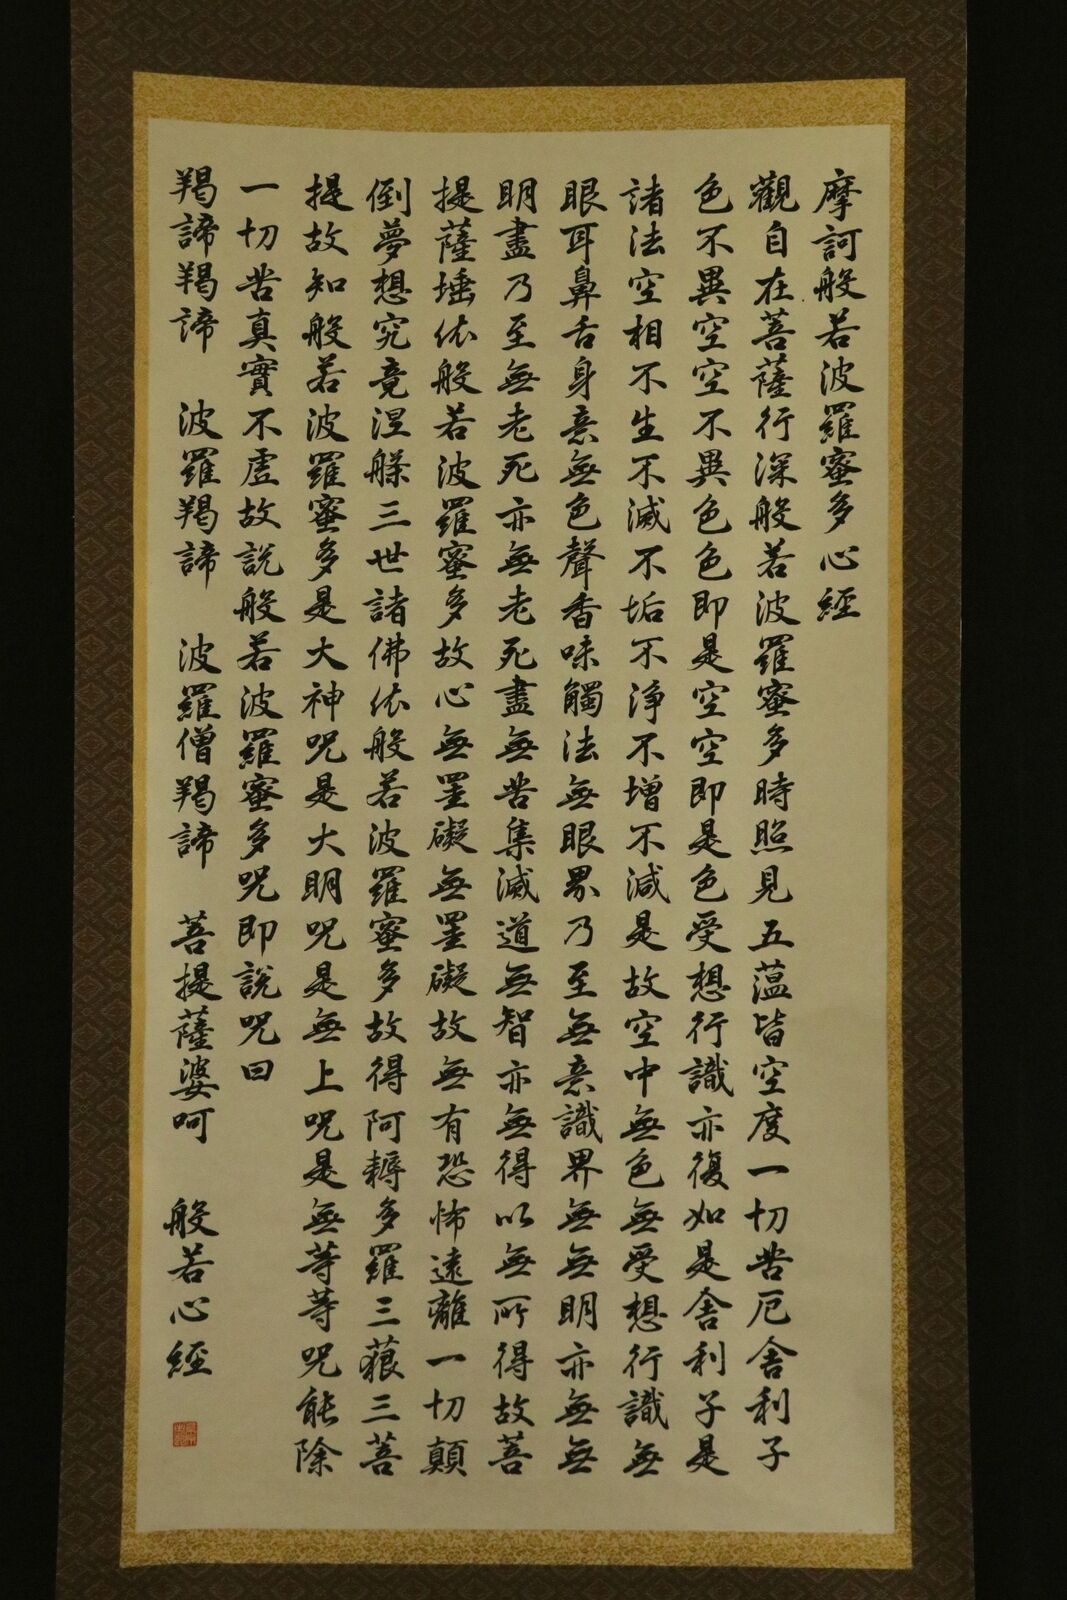 摩訶般若波羅蜜多心經
觀自在菩薩行深般若波羅蜜多時照見五蘊皆空度一切苦厄舍利子
色不異空空不異色色即是空空即是色受想行識亦復如是舍利子是
諸法空相不生不滅不垢不淨不增不減是故空中無色無受想行識無
眼耳鼻舌身意無色聲香味觸法無眼界乃至無意識界無無明亦無無
明盡乃至無老死亦無老死盡無苦集滅道無智亦無得以無所得故菩
提薩埵依般若波羅蜜多故心無罣礙無罣礙故無有恐怖遠離一切顛
倒夢想究竟涅槃三世諸佛依般若波羅蜜多故得阿耨多羅三藐三菩
提故知般若波羅蜜多是大神呪是大明呪是無上呪是無等等呪能除
一切苦真實不虛故說般若波羅蜜多呪即說呪曰
羯諦羯諦 波羅羯諦 波羅僧羯諦 菩提薩婆呵 般若心經